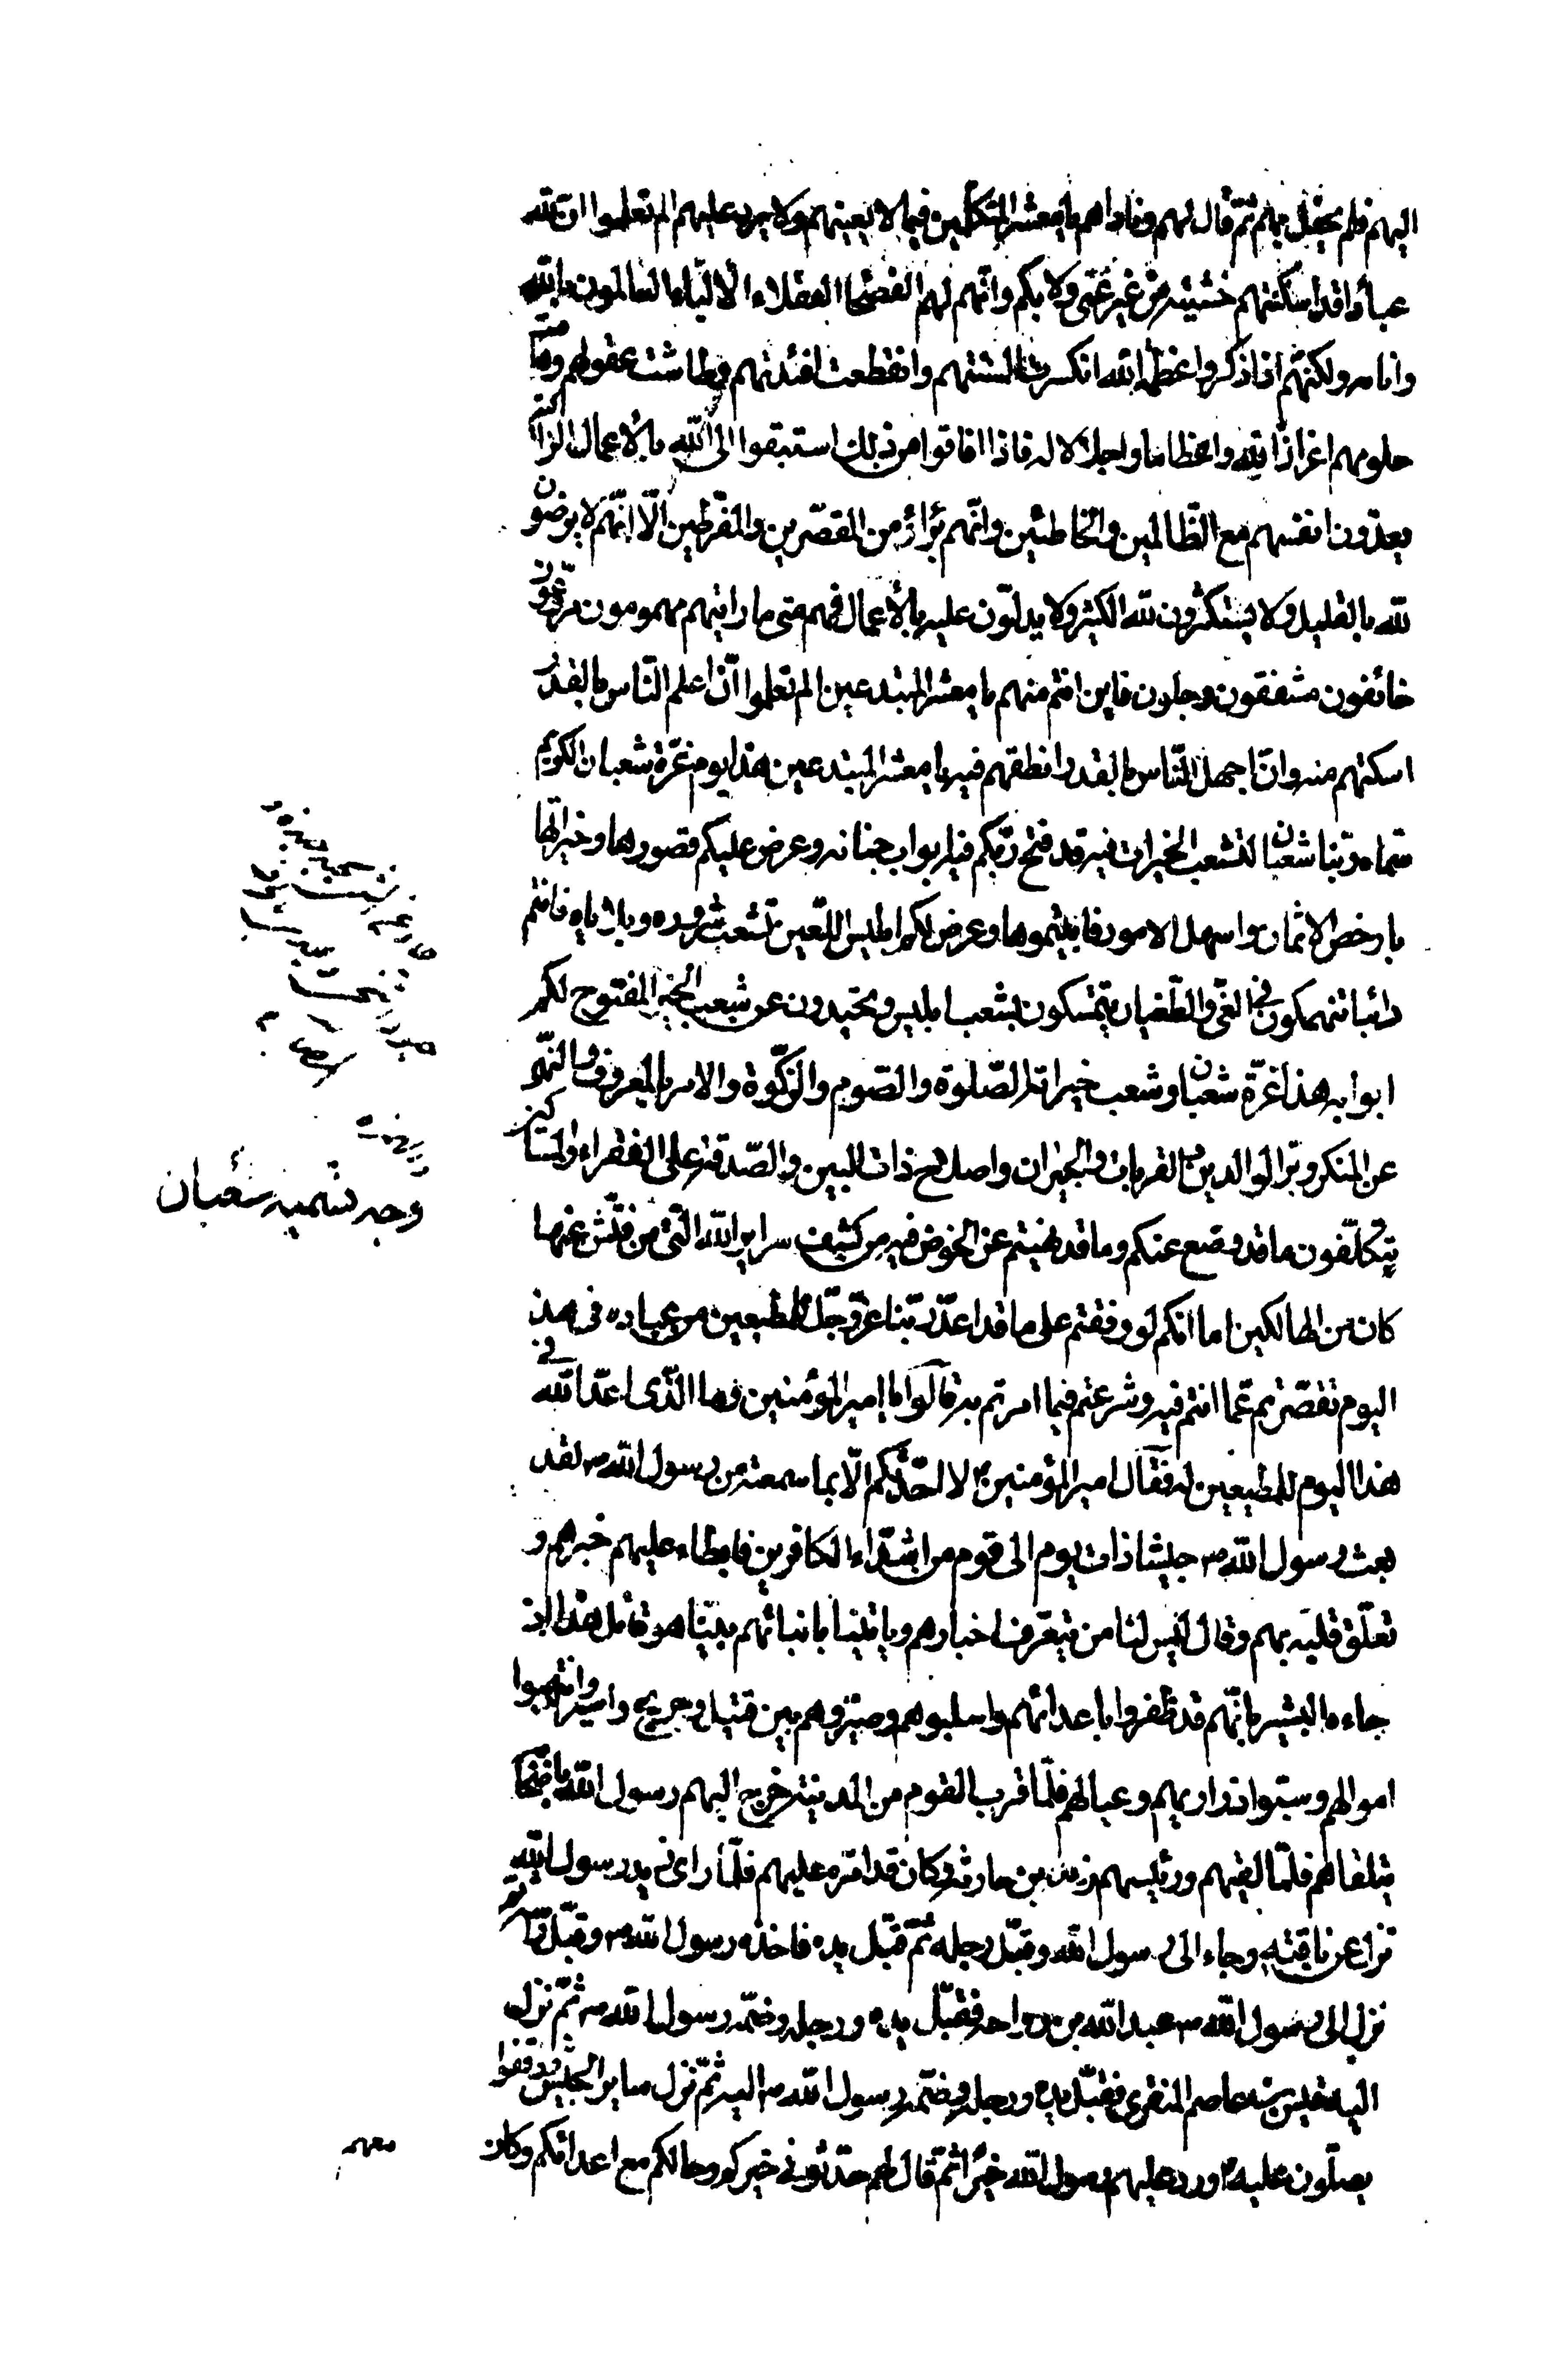 اليهم فلم يحفل بهم ثم قال لهم وناداهم يا معشر المتكلمين فيما لا يعينهم ولا يرد عليهم الم تعلموا ان لله
عبادا قد اسكتتهم خشيته من غير عى ولا بكم وانهم لهم الفصحا العقلاء الالباء العالمون بالله
وايامه ولكنهم اذا ذكروا عظمة الله انكسرت السنتهم وانقطعت افئدتهم وطاشت عقولهم وهامت
حلومهم اعزازا لله واعظاما واجلالا له فاذا افاقوا من ذلك استبقوا الى الله بالاعمال الزاكية
يعدّون انفسهم مع الظّالمين والخاطئين وانّهم براؤ من المقصّرين والمفرطين الّا انّهم لا يرضون
لله بالقليل ولا يستكثرون لله الكثير ولا يدلّون عليه بالأعمال فهم متى ما رايتهم مهمومون مروّعون
خائفون مشفقون وجلون فاين انتم منهم يا معشر المبتدعين الم تعلموا انّ اعلم النّاس بالقدر
اسكتهم منه وانّ اجهل النّاس بالقدر انطقهم فيه يا معشر المبتدعين هذا يوم غرّة شعبان الكريم
سماه ربّنا شعبان لتشعب الخيرات فيه قد فتح ربّكم فيه ابواب جنانه وعرض عليكم قصورها وخيراتها
بارخص الاثمان واسهل الامور فابيتموها وعرض لكم ابليس اللّعين تشعب شروره وبلاياه فانتم
دائبا تنهمكون في الغيّ والطّغيان تتمسكون بشعب ابليس وتحيدون عن شعب الخير المفتوح لكم
ابوابه هذا غرّة شعبان وشعب خيراته الصّلوة والصّوم والزكوة والامر بالمعروف والنهي
عن المنكر وبرّ الوالدين والقرابات والجيران واصلاح ذات البين والصّدقة على الفقراء والمساكين
تتكلّفون ما قد وضع عنكم وما قد نهيتم عن الخوض فيه من كشف سراير الله الّتي من فتّش عنها
كان من الهالكين اما انكم لو وقفتم على ما قد اعدّ ربّنا عزّ وجلّ للمطيعين من عباده في هذا
اليوم لقصّرتم عمّا انتم فيه وشرعتم فيما امرتم به قالوا يا امير المؤمنين وما الّذى اعدّ الله في
هذا اليوم للمطيعين له فقال امير المؤمنين ع لا احدّثكم الّا بما سمعته من رسول الله ص لقد
بعث رسول الله ص جيشا ذات يوم الى قوم من اشدّاء الكافرين فابطاء عليهم خبرهم و
تعلّق قلبه بهم وقال ليس لنا من يتعرّف اخبارهم وياتينا بانبائهم بينا هو قائل هذا اذ
جاءه البشير بانّهم قد ظفروا باعدائهم واسلبوهم وصيّروهم بين قتيل وجريح واسير وانتهبوا
اموالهم وسبوا ذراريهم وعيالهم فلمّا قرب القوم من المدينة خرج اليهم رسول الله باصحابه
يتلقاهم فلمّا لقيهم ورئيسهم زيد بن حارثة وكان قد امّره عليهم فلمّا راى زيد رسول الله
نزل عن ناقته وجاء الى رسول الله وقبّل رجله ثمّ قبّل يده فاخذه رسول الله ص وقبّل راسه ثم
نزل الى رسول الله ص عبد الله بن رواحه فقبّل يده ورجله وضمّه رسول الله ص ثمّ نزل
اليه قيس بن عاصم المنقري فقبّل يده ورجله وضمّه رسول الله ص اليه ثمّ نزل ساير الجيش ووقفوا
يصلّون عليه وردّ عليهم رسول الله خيرا ثمّ قال لهم حدّثوني خبركم وحالكم مع اعدائكم وكان
معهم
وجه تسميه شعبان